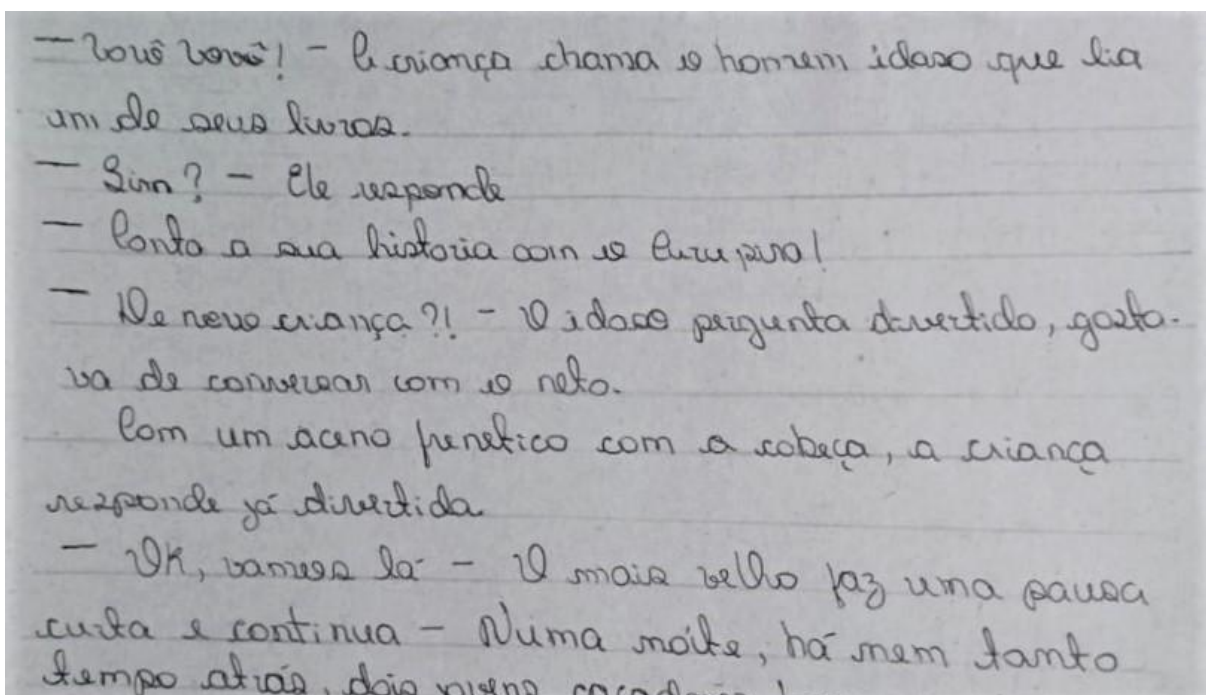 — Vovô vovô! - A criança chama o homem idoso que lia
um de seus livros.
— Sim? - Ele responde
— Conta a sua historia com o Curupira!
— De novo criança?! - O idoso pergunta divertido, gosta-
va de conversar com o neto.
Com um aceno frenetico com a cabeça, a criança
responde já divertida
— Ok, vamos lá - O mais velho faz uma pausa
curta e continua - Numa noite, há nem tanto
tempo atrás, dois